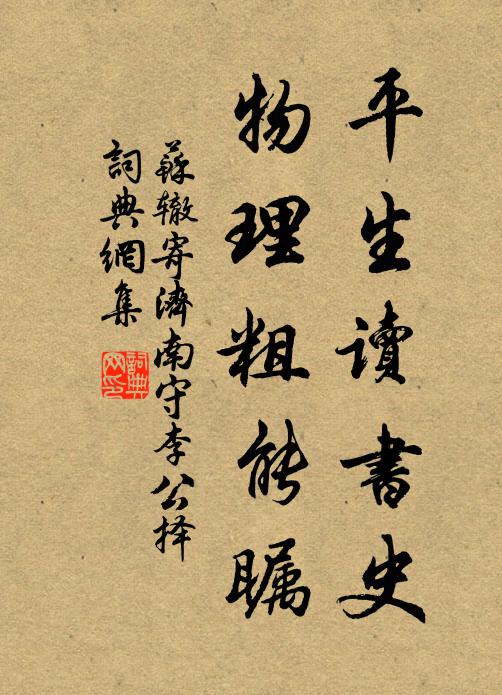 平生讀書史
物理粗能瞩
蘇辙寄濟南守李公择
詞典網集
詞典
网印